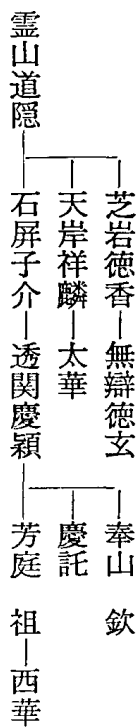 霊山道隠
芝岩徳香―無辯徳玄
天岸祥麟―太華
石屏子介―透関慶穎
奉山 欽
慶託
芳庭 祖―西華